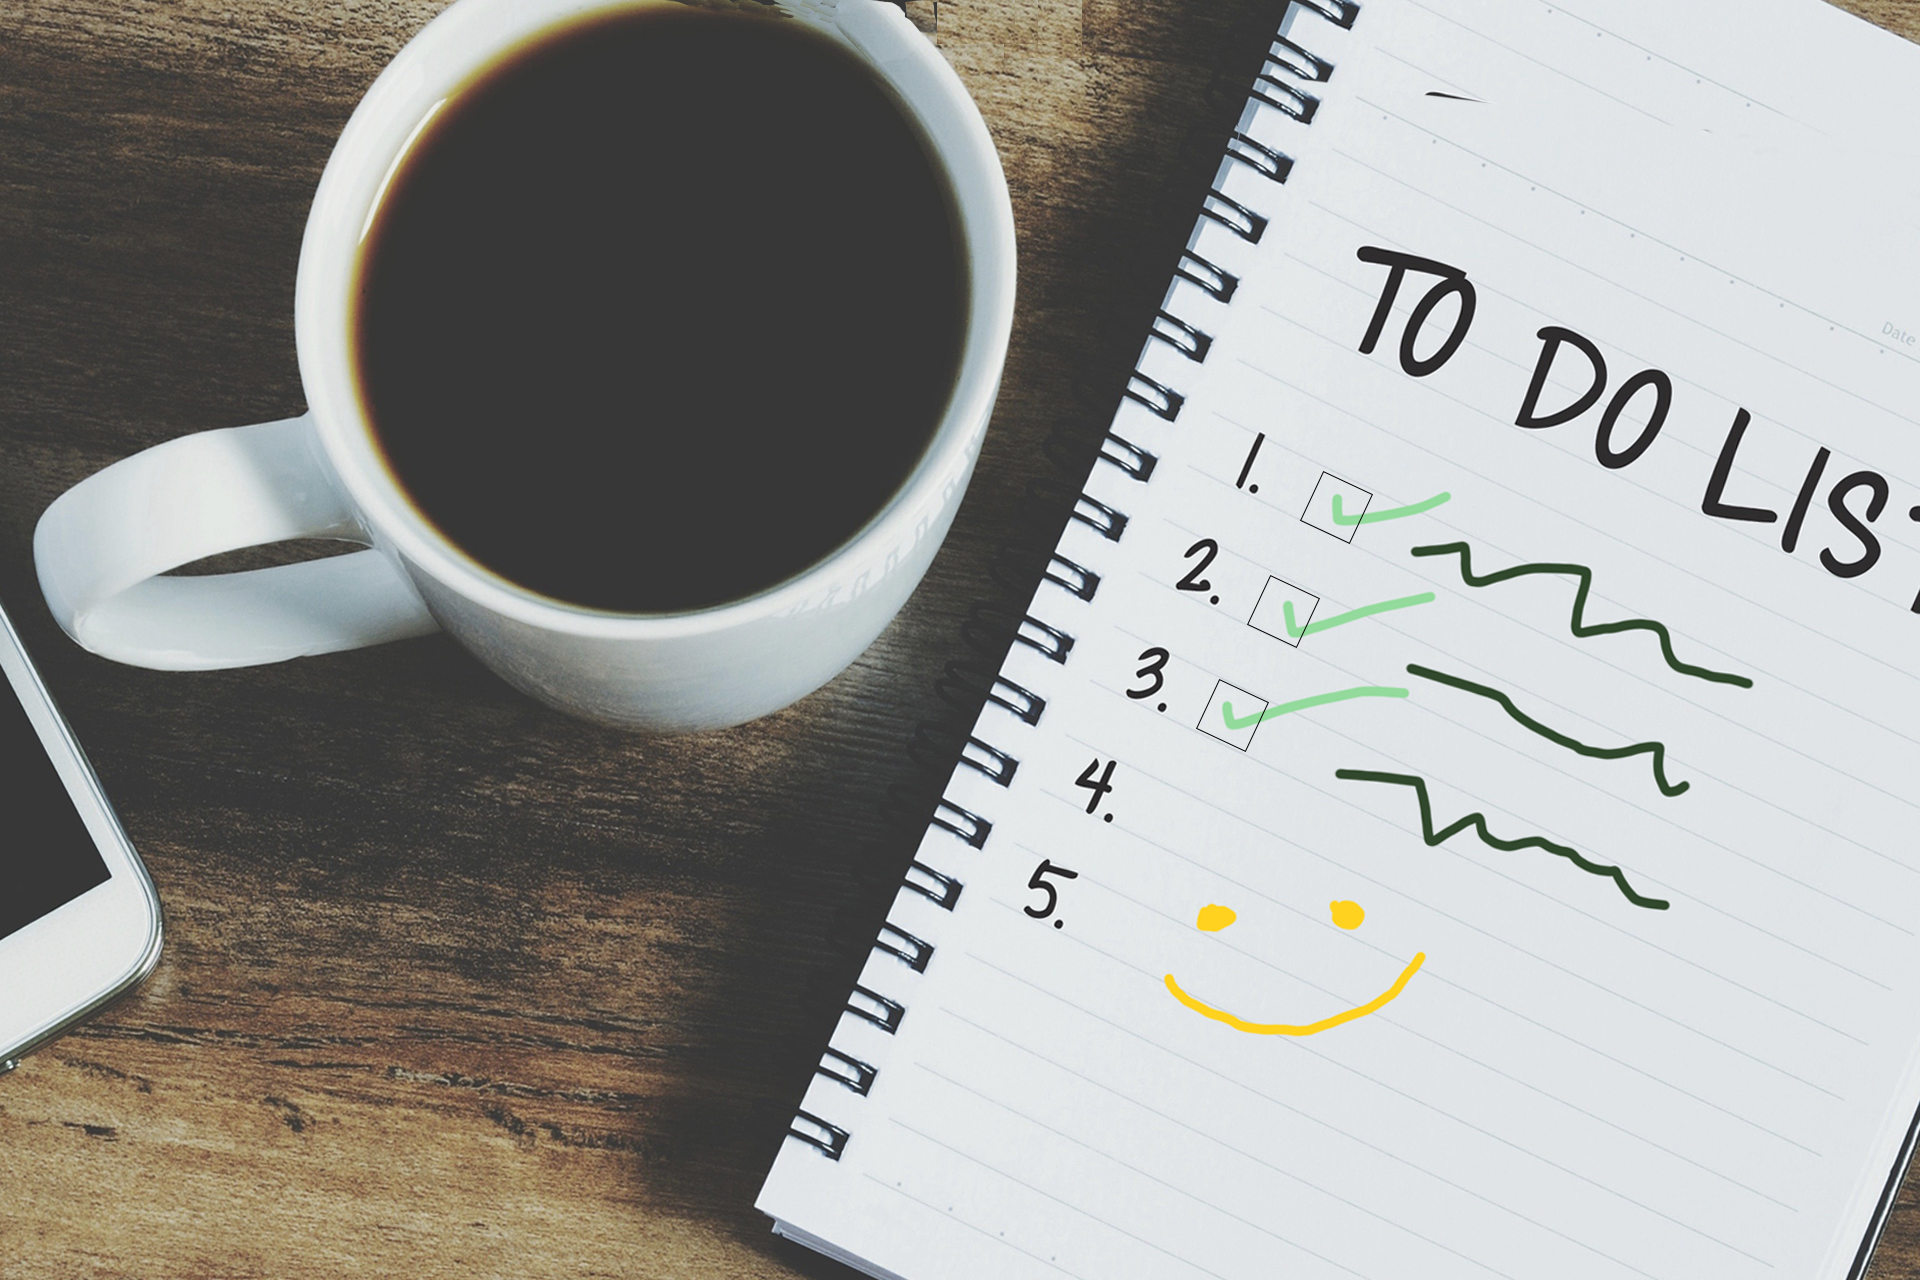 Date
TO DO LIST
1.
2.
3.
4.
5.